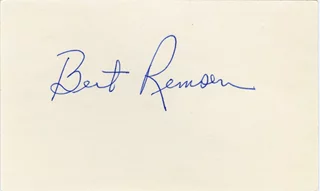 Bert Remsen